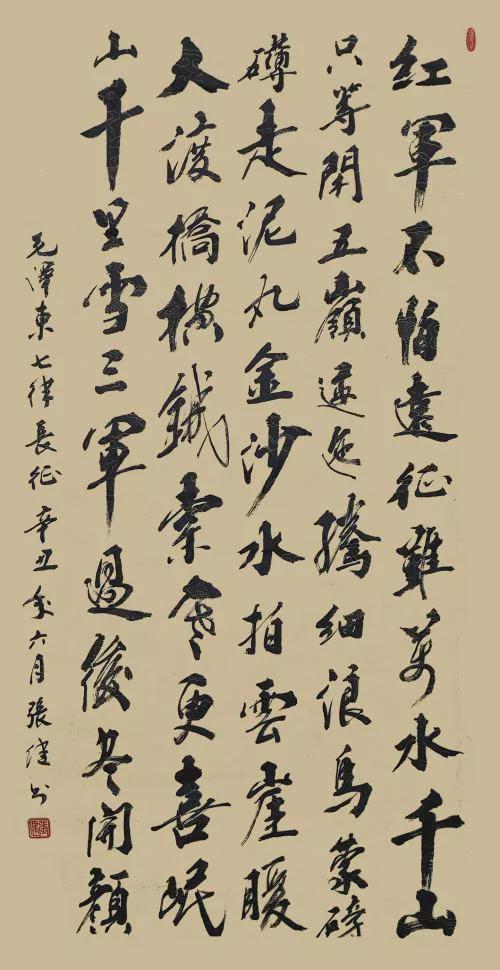 紅軍不怕遠征難萬水千山
只等閑五嶺逶迤騰細浪烏蒙磅
礴走泥丸金沙水拍雲崖暖
大渡橋橫鐵索寒更喜岷
山千里雪三軍過後尽開顏
毛澤東七律長征辛丑年六月張健书